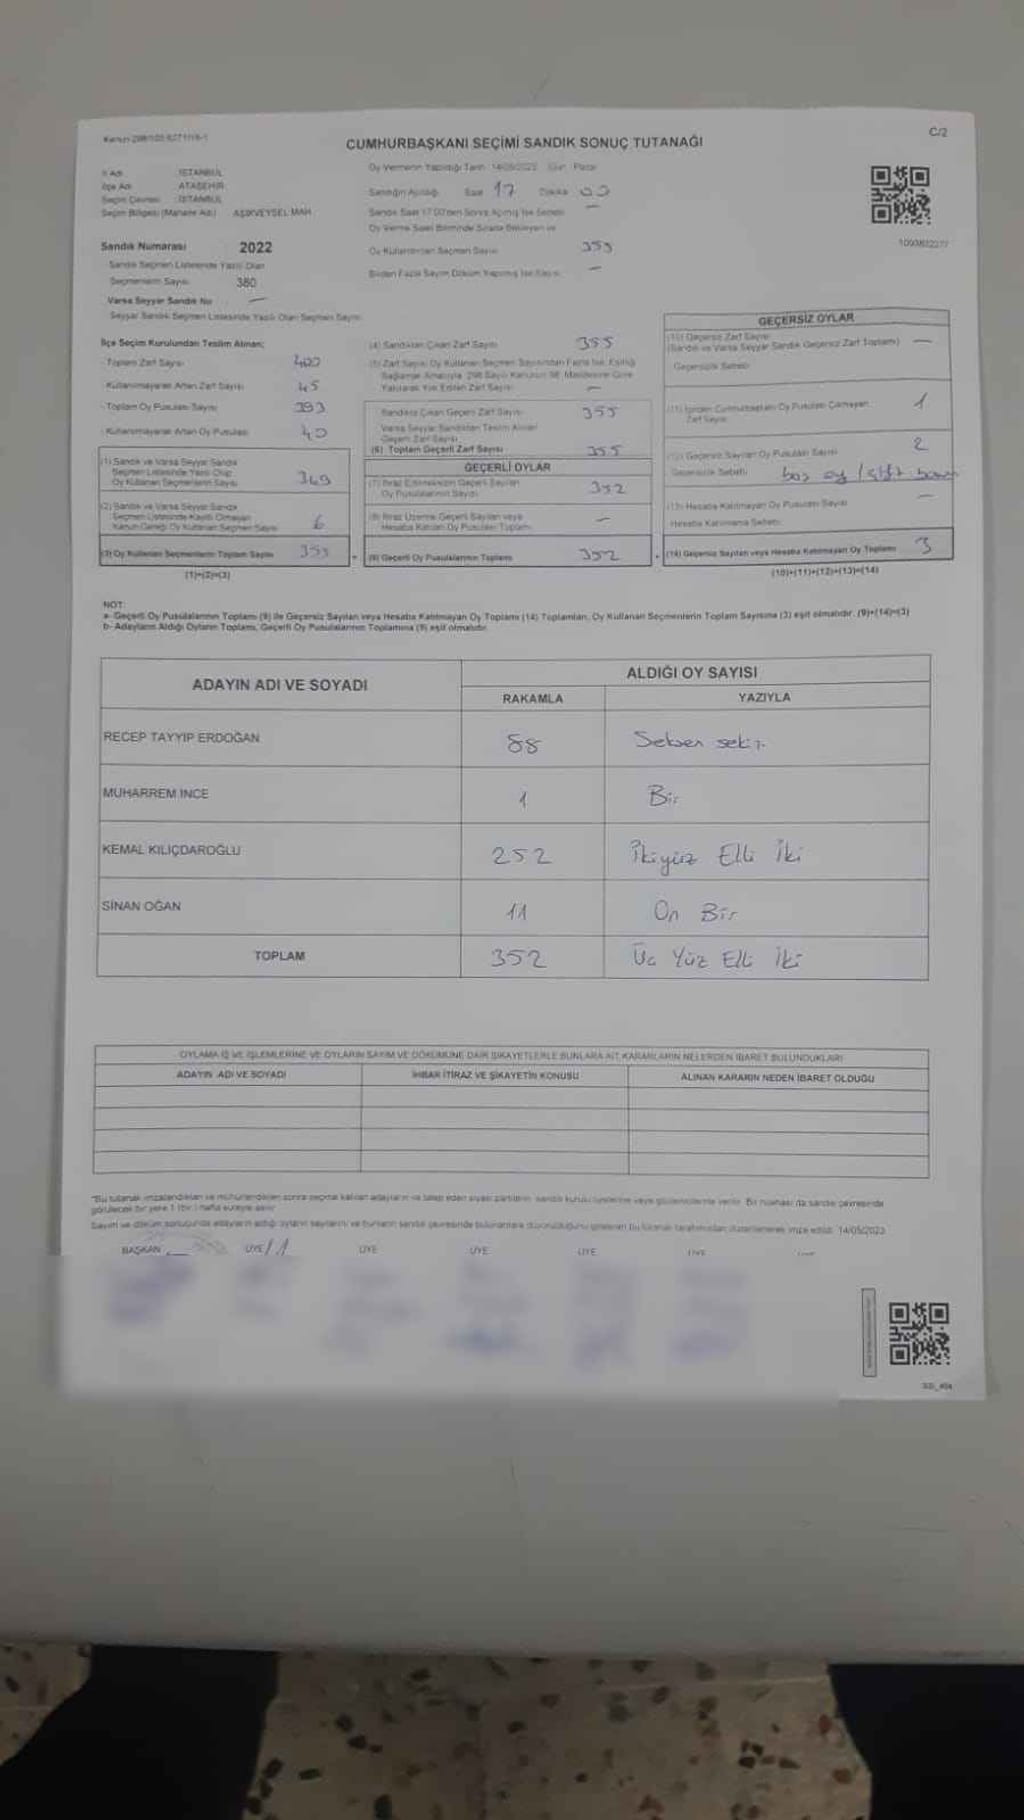 CUMHURBAŞKANI SEÇİMİ SANDIK SONUÇ TUTANAĞI
C/2
İl Adı İSTANBUL
İlçe Adı ATAŞEHİR
Seçim Çevresi İSTANBUL
Seçim Bölgesi (Mahalle Adı) AŞIKVEYSEL MAH
Oy Vermenin Yapıldığı Tarih 14/05/2023 Gün Pazar
Sandığın Açıldığı Saat 17 Dakika 00
Sandık Saat 17:00'den Sonra Açılmış İse Sebebi —
Oy Verme Saati Bitiminde Sırada Bekleyen ve
Oy Kullandırılan Seçmen Sayısı 355
Birden Fazla Sayım Döküm Yapılmış İse Sayısı —
Sandık Numarası 2022
Sandık Seçmen Listesinde Yazılı Olan
Seçmenlerin Sayısı 380
Varsa Seyyar Sandık No —
Seyyar Sandık Seçmen Listesinde Yazılı Olan Seçmen Sayısı
İlçe Seçim Kurulundan Teslim Alınan;
Toplam Zarf Sayısı 400
Kullanılmayarak Artan Zarf Sayısı 45
Toplam Oy Pusulası Sayısı 393
Kullanılmayarak Artan Oy Pusulası 40
(1) Sandık ve Varsa Seyyar Sandık
Seçmen Listesinde Yazılı Olup
Oy Kullanan Seçmenlerin Sayısı 349
(2) Sandık ve Varsa Seyyar Sandık
Seçmen Listesinde Kayıtlı Olmayan
Kanun Gereği Oy Kullanan Seçmen Sayısı 6
(3) Oy Kullanan Seçmenlerin Toplam Sayısı 355
(1)+(2)=(3)
(4) Sandıktan Çıkan Zarf Sayısı 355
(5) Zarf Sayısı Oy Kullanan Seçmen Sayısından Fazla İse, Eşitliği
Sağlamak Amacıyla 298 Sayılı Kanunun 98. Maddesine Göre
Yakılarak Yok Edilen Zarf Sayısı —
Sandıkta Çıkan Geçerli Zarf Sayısı 355
Varsa Seyyar Sandıktan Teslim Alınan
Geçerli Zarf Sayısı
(6) Toplam Geçerli Zarf Sayısı 355
GEÇERLİ OYLAR
(7) İtiraz Edilmeksizin Geçerli Sayılan
Oy Pusulalarının Sayısı 352
(8) İtiraz Üzerine Geçerli Sayılan veya
Hesaba Katılan Oy Pusulası Toplamı —
(9) Geçerli Oy Pusulalarının Toplamı 352
GEÇERSİZ OYLAR
(10) Geçersiz Zarf Sayısı
(Sandık ve Varsa Seyyar Sandık Geçersiz Zarf Toplamı) —
Geçersizlik Sebebi
(11) İçinden Cumhurbaşkanı Oy Pusulası Çıkmayan
Zarf Sayısı 1
(12) Geçersiz Sayılan Oy Pusulası Sayısı 2
Geçersizlik Sebebi boş oy / çift
(13) Hesaba Katılmayan Oy Pusulası Sayısı —
Hesaba Katılmama Sebebi
(14) Geçersiz Sayılan veya Hesaba Katılmayan Oy Toplamı 3
(10)+(11)+(12)+(13)=(14)
NOT:
a- Geçerli Oy Pusulalarının Toplamı (9) ile Geçersiz Sayılan veya Hesaba Katılmayan Oy Toplamı (14) Toplamları, Oy Kullanan Seçmenlerin Toplam Sayısına (3) eşit olmalıdır. (9)+(14)=(3)
b- Adayların Aldığı Oyların Toplamı, Geçerli Oy Pusulalarının Toplamına (9) eşit olmalıdır.
ADAYIN ADI VE SOYADI
ALDIĞI OY SAYISI
RAKAMLA YAZIYLA
RECEP TAYYIP ERDOĞAN 88 Seksen sekiz
MUHARREM İNCE 1 Bir
KEMAL KILIÇDAROĞLU 252 İkiyüz Elli İki
SİNAN OĞAN 11 On Bir
TOPLAM 352 Üç Yüz Elli İki
OYLAMA İŞ VE İŞLEMLERİNE VE OYLARIN SAYIM VE DÖKÜMÜNE DAİR ŞİKAYETLERLE BUNLARA AİT KARARLARIN NELERDEN İBARET BULUNDUKLARI
ADAYIN ADI VE SOYADI İHBAR İTİRAZ VE ŞİKAYETİN KONUSU ALINAN KARARIN NEDEN İBARET OLDUĞU
BAŞKAN ÜYE ÜYE ÜYE ÜYE ÜYE